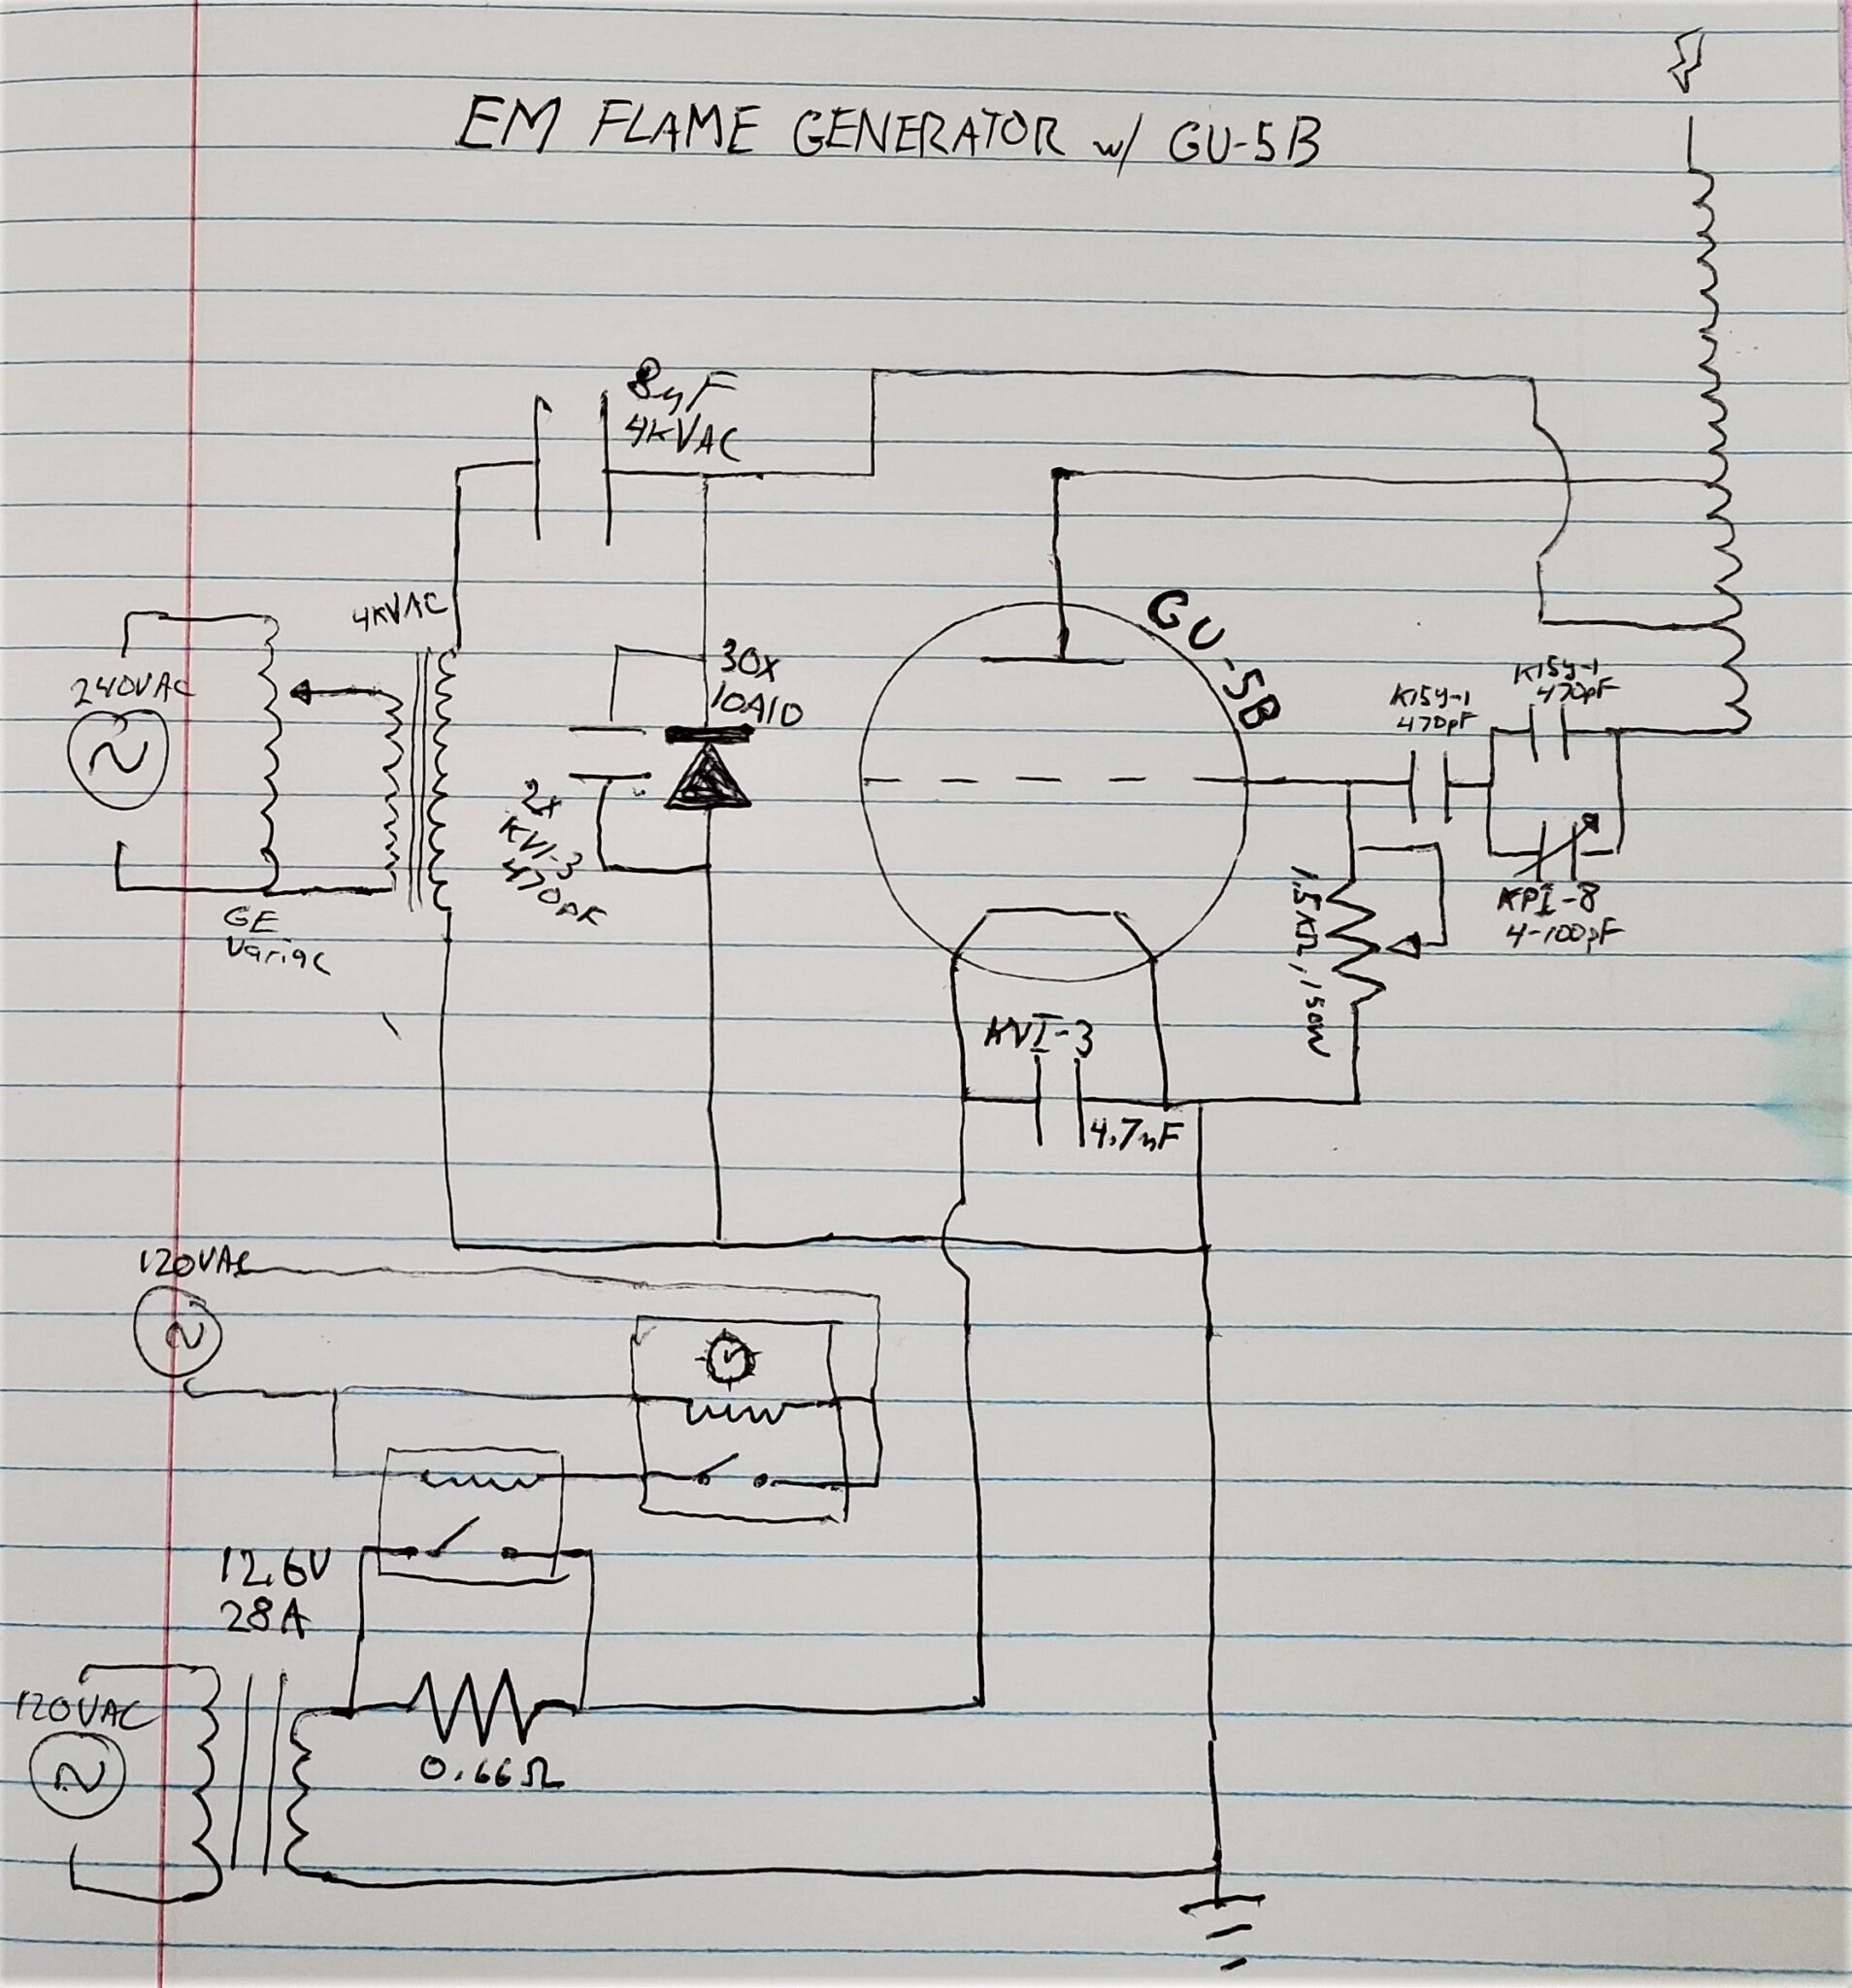 EM FLAME GENERATOR w/ GU-5B
8uF
4KVAC
4KVAC
GU-5B
240VAC
30x
10A10
K15y-1
470pF
K15y-1
470pF
2x
KVI-3
470pF
KPI-8
4-100pF
1.5KΩ, 150W
GE
Variac
KVI-3
4.7nF
120VAC
12.6V
28A
120VAC
0.66Ω